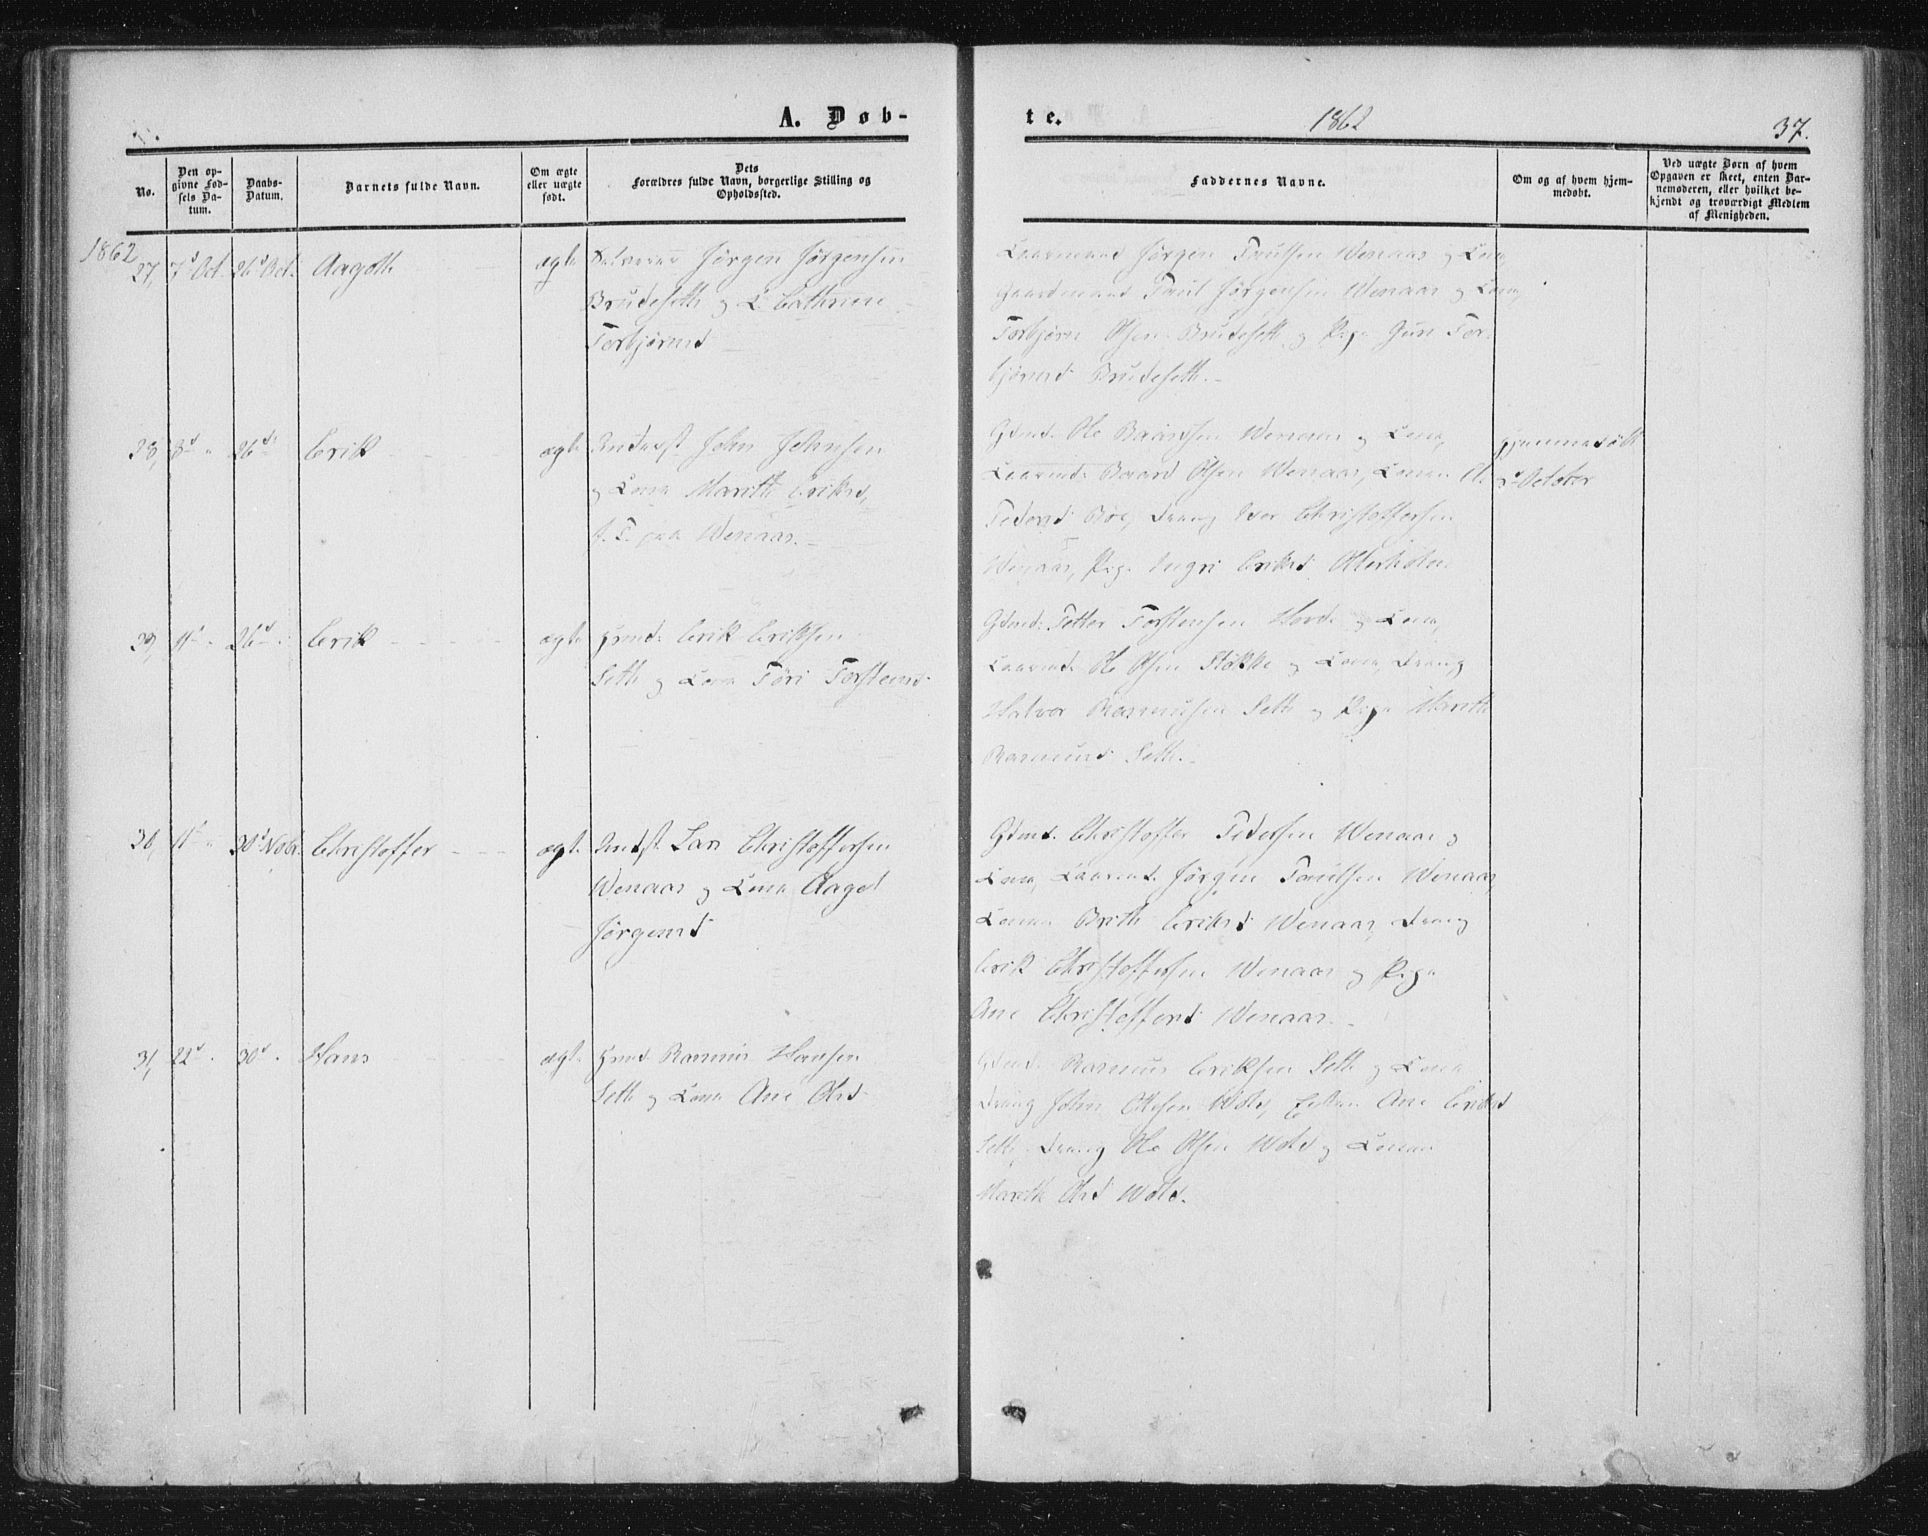 A. Døb-
te.
1862
37.
No.
Den op-
givne Fød-
sels Da-
tum.
Daabs-
Datum.
Barnets fulde Navn.
Om ægte
eller uægte
født.
Dets
Forældres fulde Navn, borgerlige Stilling og
Opholdssted.
Faddernes Navne.
Om og af hvem hjem-
medøbt.
Ved uægte Børn af hvem
Opgaven er skeet, enten Bar-
nemoderen, eller hvilket be-
kjendt og troværdigt Medlem
af Menigheden.
1862
27, 7d Oct. 26d Oct. Aagoth ægte Jørgen Jørgensen
Brudeseth og K. Cathrine
Torbjørnsd
Jørgen Paulsen Wenaas og Kona,
Gaardmand Paul Jørgensen Wenaas og Kona,
Torbjørn Olsen Brudeseth og Pige Guri Tor-
bjørnsd Brudeseth.
28, 8d 26d Erik ægte Inderst John Johnsen
og Kona Marith Eriksd,
f. T. paa Wenaas.
Gdmd. Ole Baardsen Wenaas og Kona,
Baard Olsen Wenaas, Konen
Pedersd Boe, Dreng Iver Christoffersen
Wenaas, Pige Ingri Eriksd Otterholm
Hjemmedøbt
October
29, 11d 26d Erik ægte Erik Eriksen
Seth og Kona Føri Torstensd
Gdmd: Petter Torstensen Hovde og Kona,
Ole Olsen Stokke og Kona, Dreng
Halvor Rasmusen Seth og Pige Marith
Rasmusd Seth.
30, 11d 30d Nobr. Christoffer ægte Indst. Lars Christoffersen
Wenaas og Kona Aagot
Jørgensd
Gdmd. Christoffer Pedersen Wenaas og
Kona, Jørgen Paulsen Wenaas,
Konen Brith Eriksd Wenaas, Dreng
Erik Christoffersen Wenaas og Pige
Ane Christoffersd Wenaas.
31, 22d 30d Hans ægte Rasmus Hansen
Seth og Kona Ane Olsd
Gdmd. Rasmus Eriksen Seth og Kona
Dreng John Ottesen Wold, Enken Ane Eriksd
Seth, Dreng Ole Olsen Wold og Konen
Marith Olsd Wold.